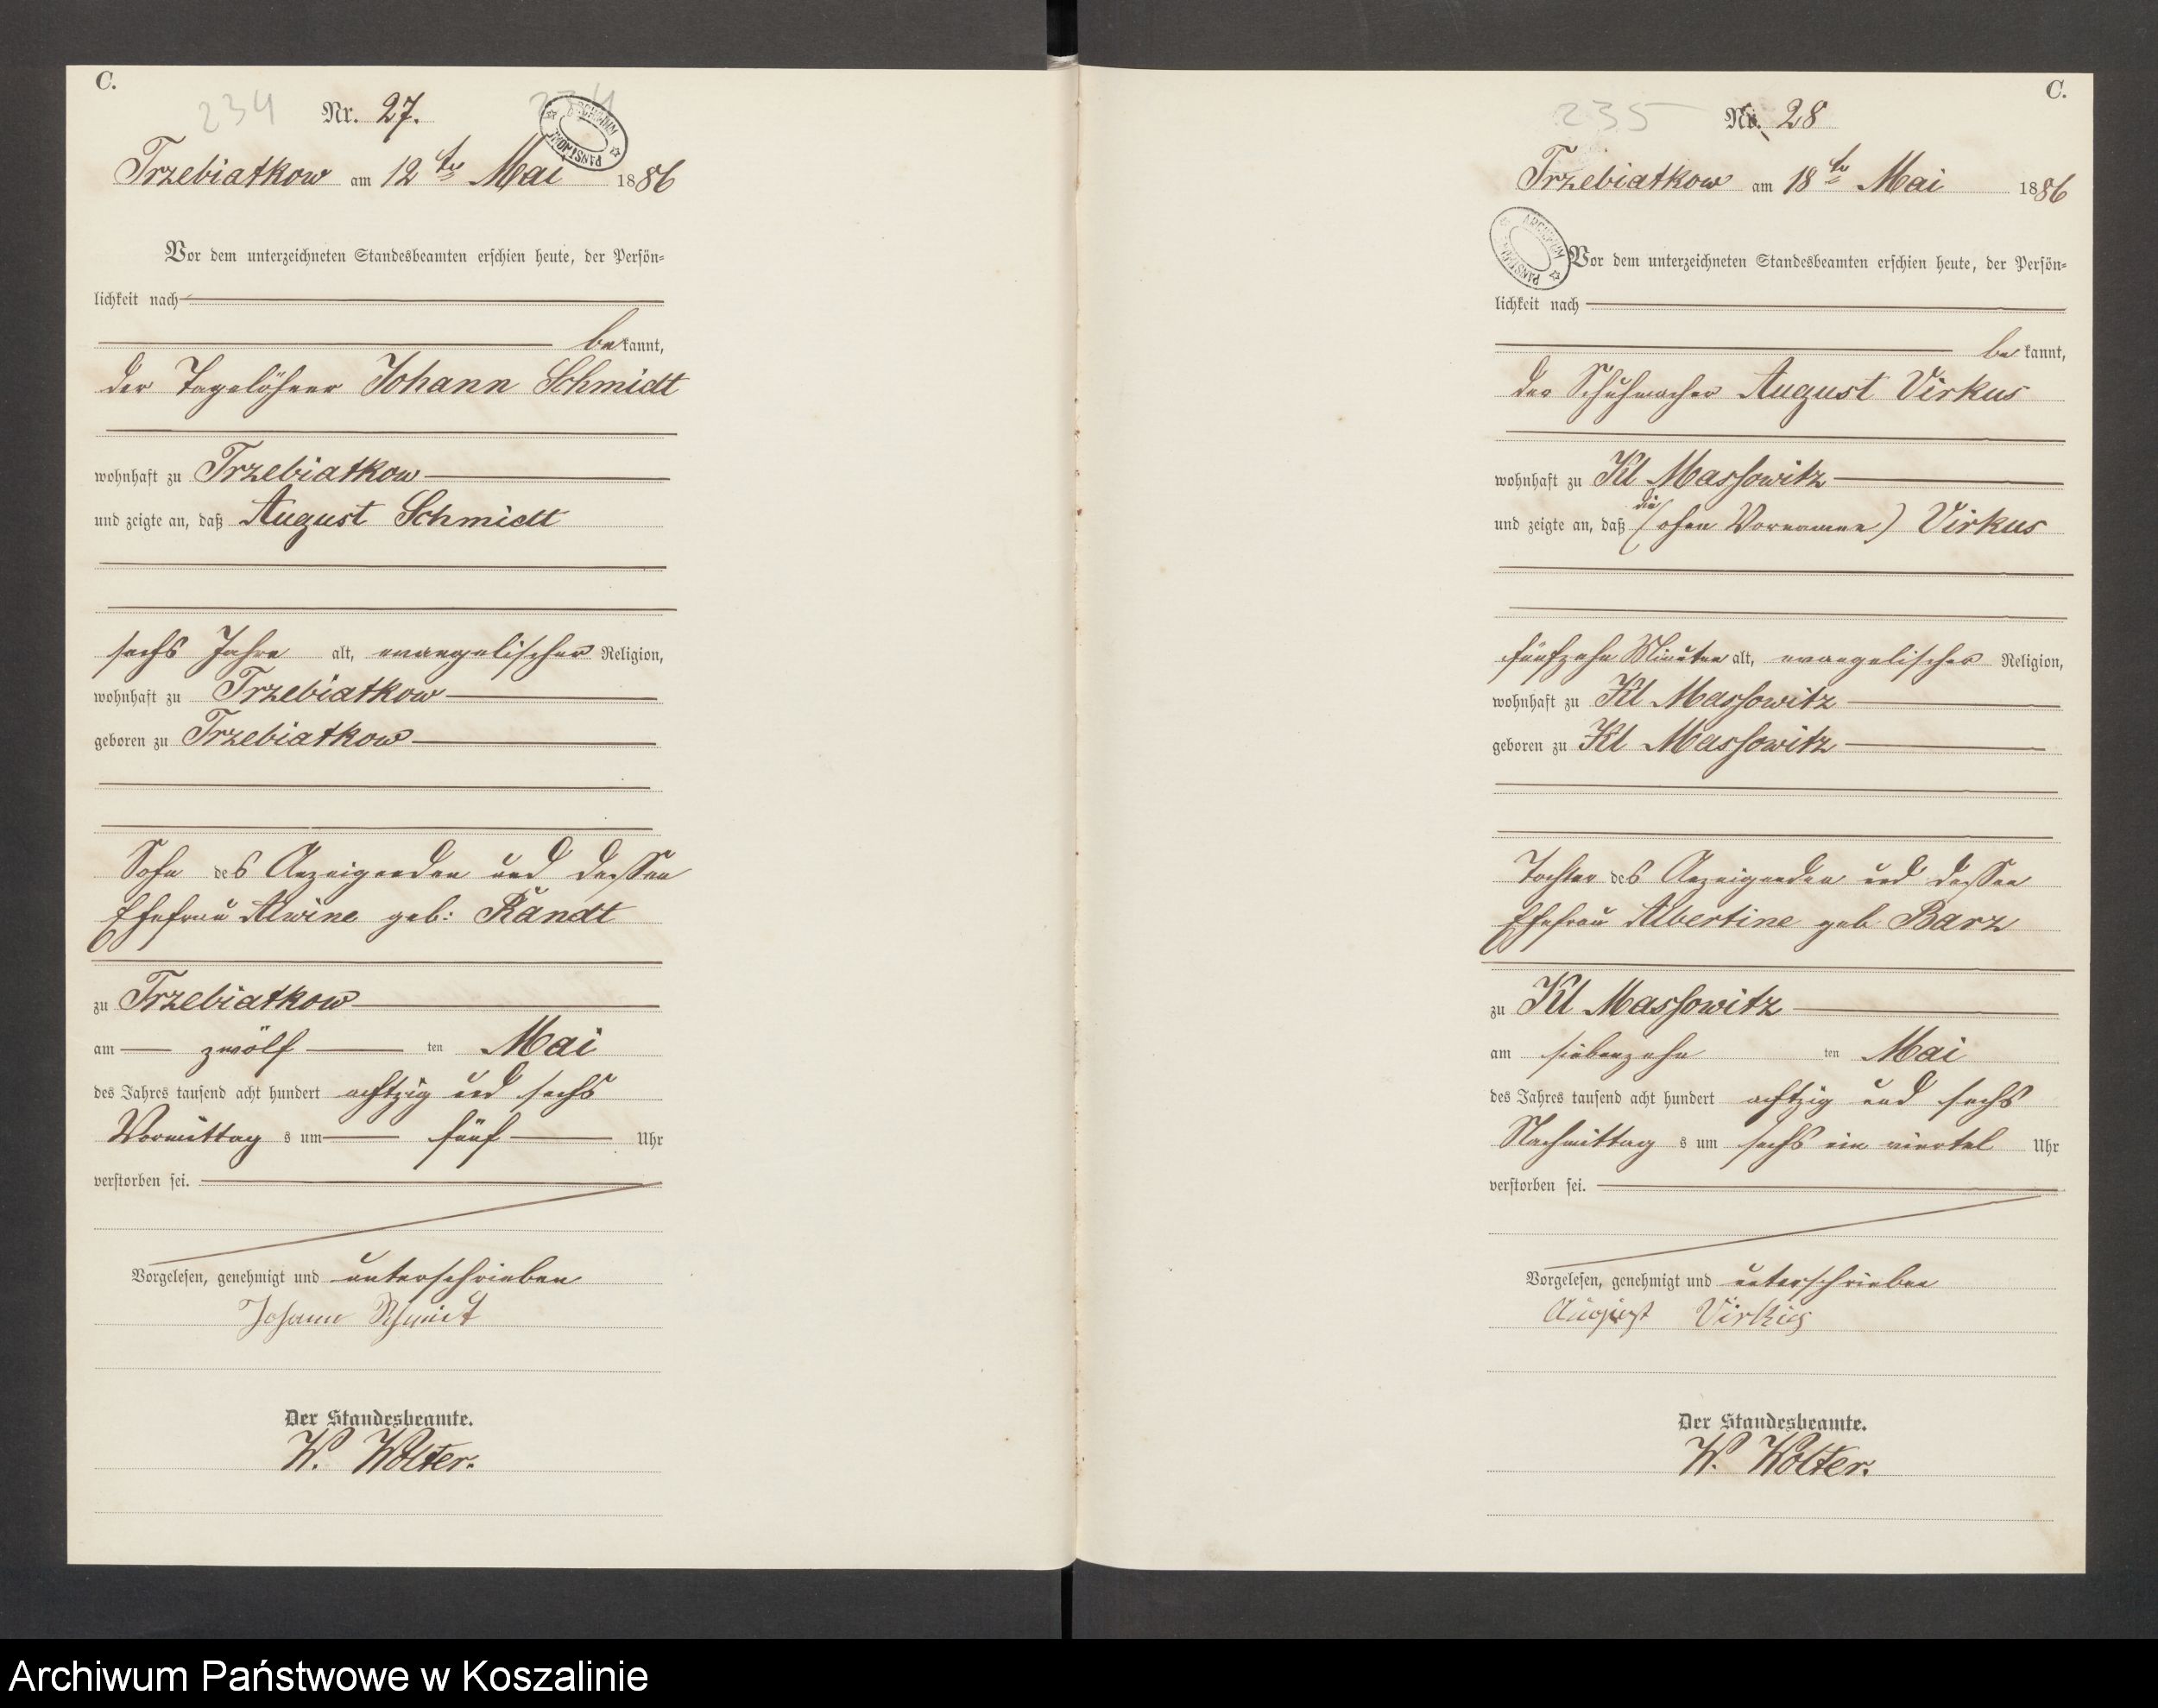 C.
234
Nr. 27.
234
ARCHIWUM PAŃSTWOWE
Trzebiatkow am 12ten Mai 1886
Vor dem unterzeichneten Standesbeamten erschien heute, der Persön-
lichkeit nach
bekannt,
der Tagelöhner Johann Schmidt
wohnhaft zu Trzebiatkow
und zeigte an, daß August Schmidt
sechs Jahre alt, evangelischer Religion,
wohnhaft zu Trzebiatkow
geboren zu Trzebiatkow
Sohn des Anzeigenden und dessen
Ehefrau Alwine geb: Randt
zu Trzebiatkow
am zwölf ten Mai
des Jahres tausend acht hundert achtzig und sechs
Vormittag s um fünf Uhr
verstorben sei.
Vorgelesen, genehmigt und unterschrieben
Johann Schmidt
Der Standesbeamte.
W. Wolter.
C.
235
No. 28
Trzebiatkow am 18ten Mai 1886
ARCHIWUM PAŃSTWOWE
Vor dem unterzeichneten Standesbeamten erschien heute, der Persön-
lichkeit nach
bekannt,
der Schuhmacher August Virkus
wohnhaft zu Kl Massowitz
und zeigte an, daß die (ohne Vornamen) Virkus
fünfzehn Minuten alt, evangelischer Religion,
wohnhaft zu Kl Massowitz
geboren zu Kl Massowitz
Tochter des Anzeigenden und dessen
Ehefrau Albertine geb Barz
zu Kl Massowitz
am siebenzehn ten Mai
des Jahres tausend acht hundert achtzig und sechs
Nachmittag s um sechs ein viertel Uhr
verstorben sei.
Vorgelesen, genehmigt und unterschrieben
August Virkus
Der Standesbeamte.
W. Wolter.
Archiwum Państwowe w Koszalinie